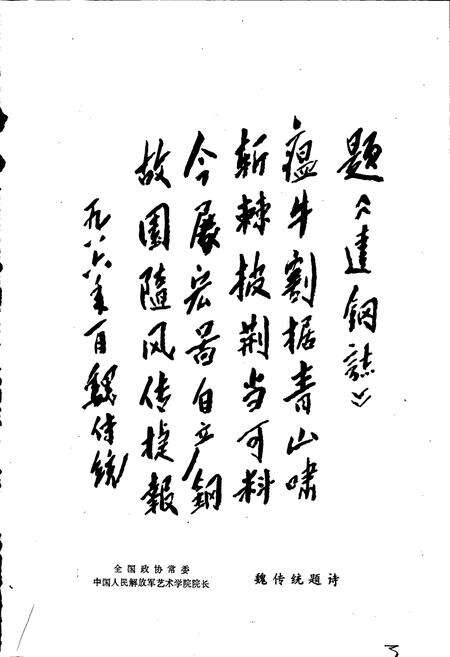 题《达钢志》
瘟牛割据青山啸
斩棘披荆当可料
今展宏图自立钢
故园随风传捷报
一九八六年百魏传统
全国政协常委
中国人民解放军艺术学院院长
魏传统题诗
3